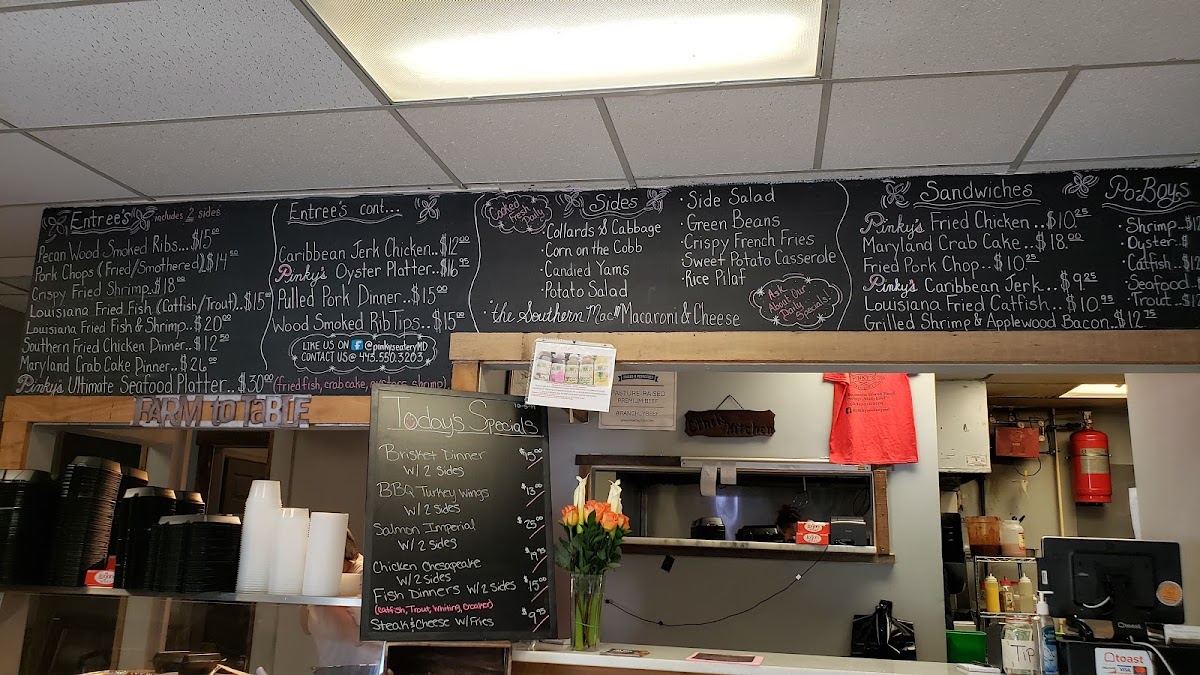 Entree's includes 2 sides
Pecan Wood Smoked Ribs...$15.00
Pork Chops (Fried/Smothered).$14.50
Crispy Fried Shrimp.$18.00
Louisiana Fried Fish (Catfish/Trout)..$15.00
Louisiana Fried Fish & Shrimp..$20.00
Southern Fried Chicken Dinner..$12.50
Maryland Crab Cake Dinner..$26.00
Pinky's Ultimate Seafood Platter..$30.00 (fried fish, crab cake, oysters, shrimp)
Entree's cont...
Caribbean Jerk Chicken..$12.00
Pinky's Oyster Platter..$16.95
Pulled Pork Dinner..$15.00
Wood Smoked Rib Tips..$15.00
LIKE US ON f @pinkyseateryMD
CONTACT US@ 443.550.3203
Cooked Fresh Daily
Sides
·Collards & Cabbage
·Corn on the Cobb
·Candied Yams
·Potato Salad
·the Southern Mac" Macaroni & Cheese
·Side Salad
·Green Beans
·Crispy French Fries
·Sweet Potato Casserole
·Rice Pilaf
Ask About Our Daily Specials!
Sandwiches
Pinky's Fried Chicken..$10.25
Maryland Crab Cake..$18.00
Fried Pork Chop..$10.25
Pinky's Caribbean Jerk..$9.25
Louisiana Fried Catfish..$10.95
Grilled Shrimp & Applewood Bacon..$12.75
Po-Boys
·Shrimp..$12
·Oyster..$
·Catfish..$12
·Seafood
·Trout..$1
FARM to TaBLE
Today's Specials
Brisket Dinner $15.00
W/ 2 sides
BBQ Turkey Wings $13.00
W/ 2 sides
Salmon Imperial $25.00
W/ 2 sides
Chicken Chesapeake $19.95
W/ 2 sides
Fish Dinners W/ 2 sides $15.00
(Catfish, Trout, Whiting, Croaker)
Steak & Cheese W/ Fries $9.95
PASTURE-RAISED
PREMIUM BEEF
Kitchen
Tip
toast
VISA